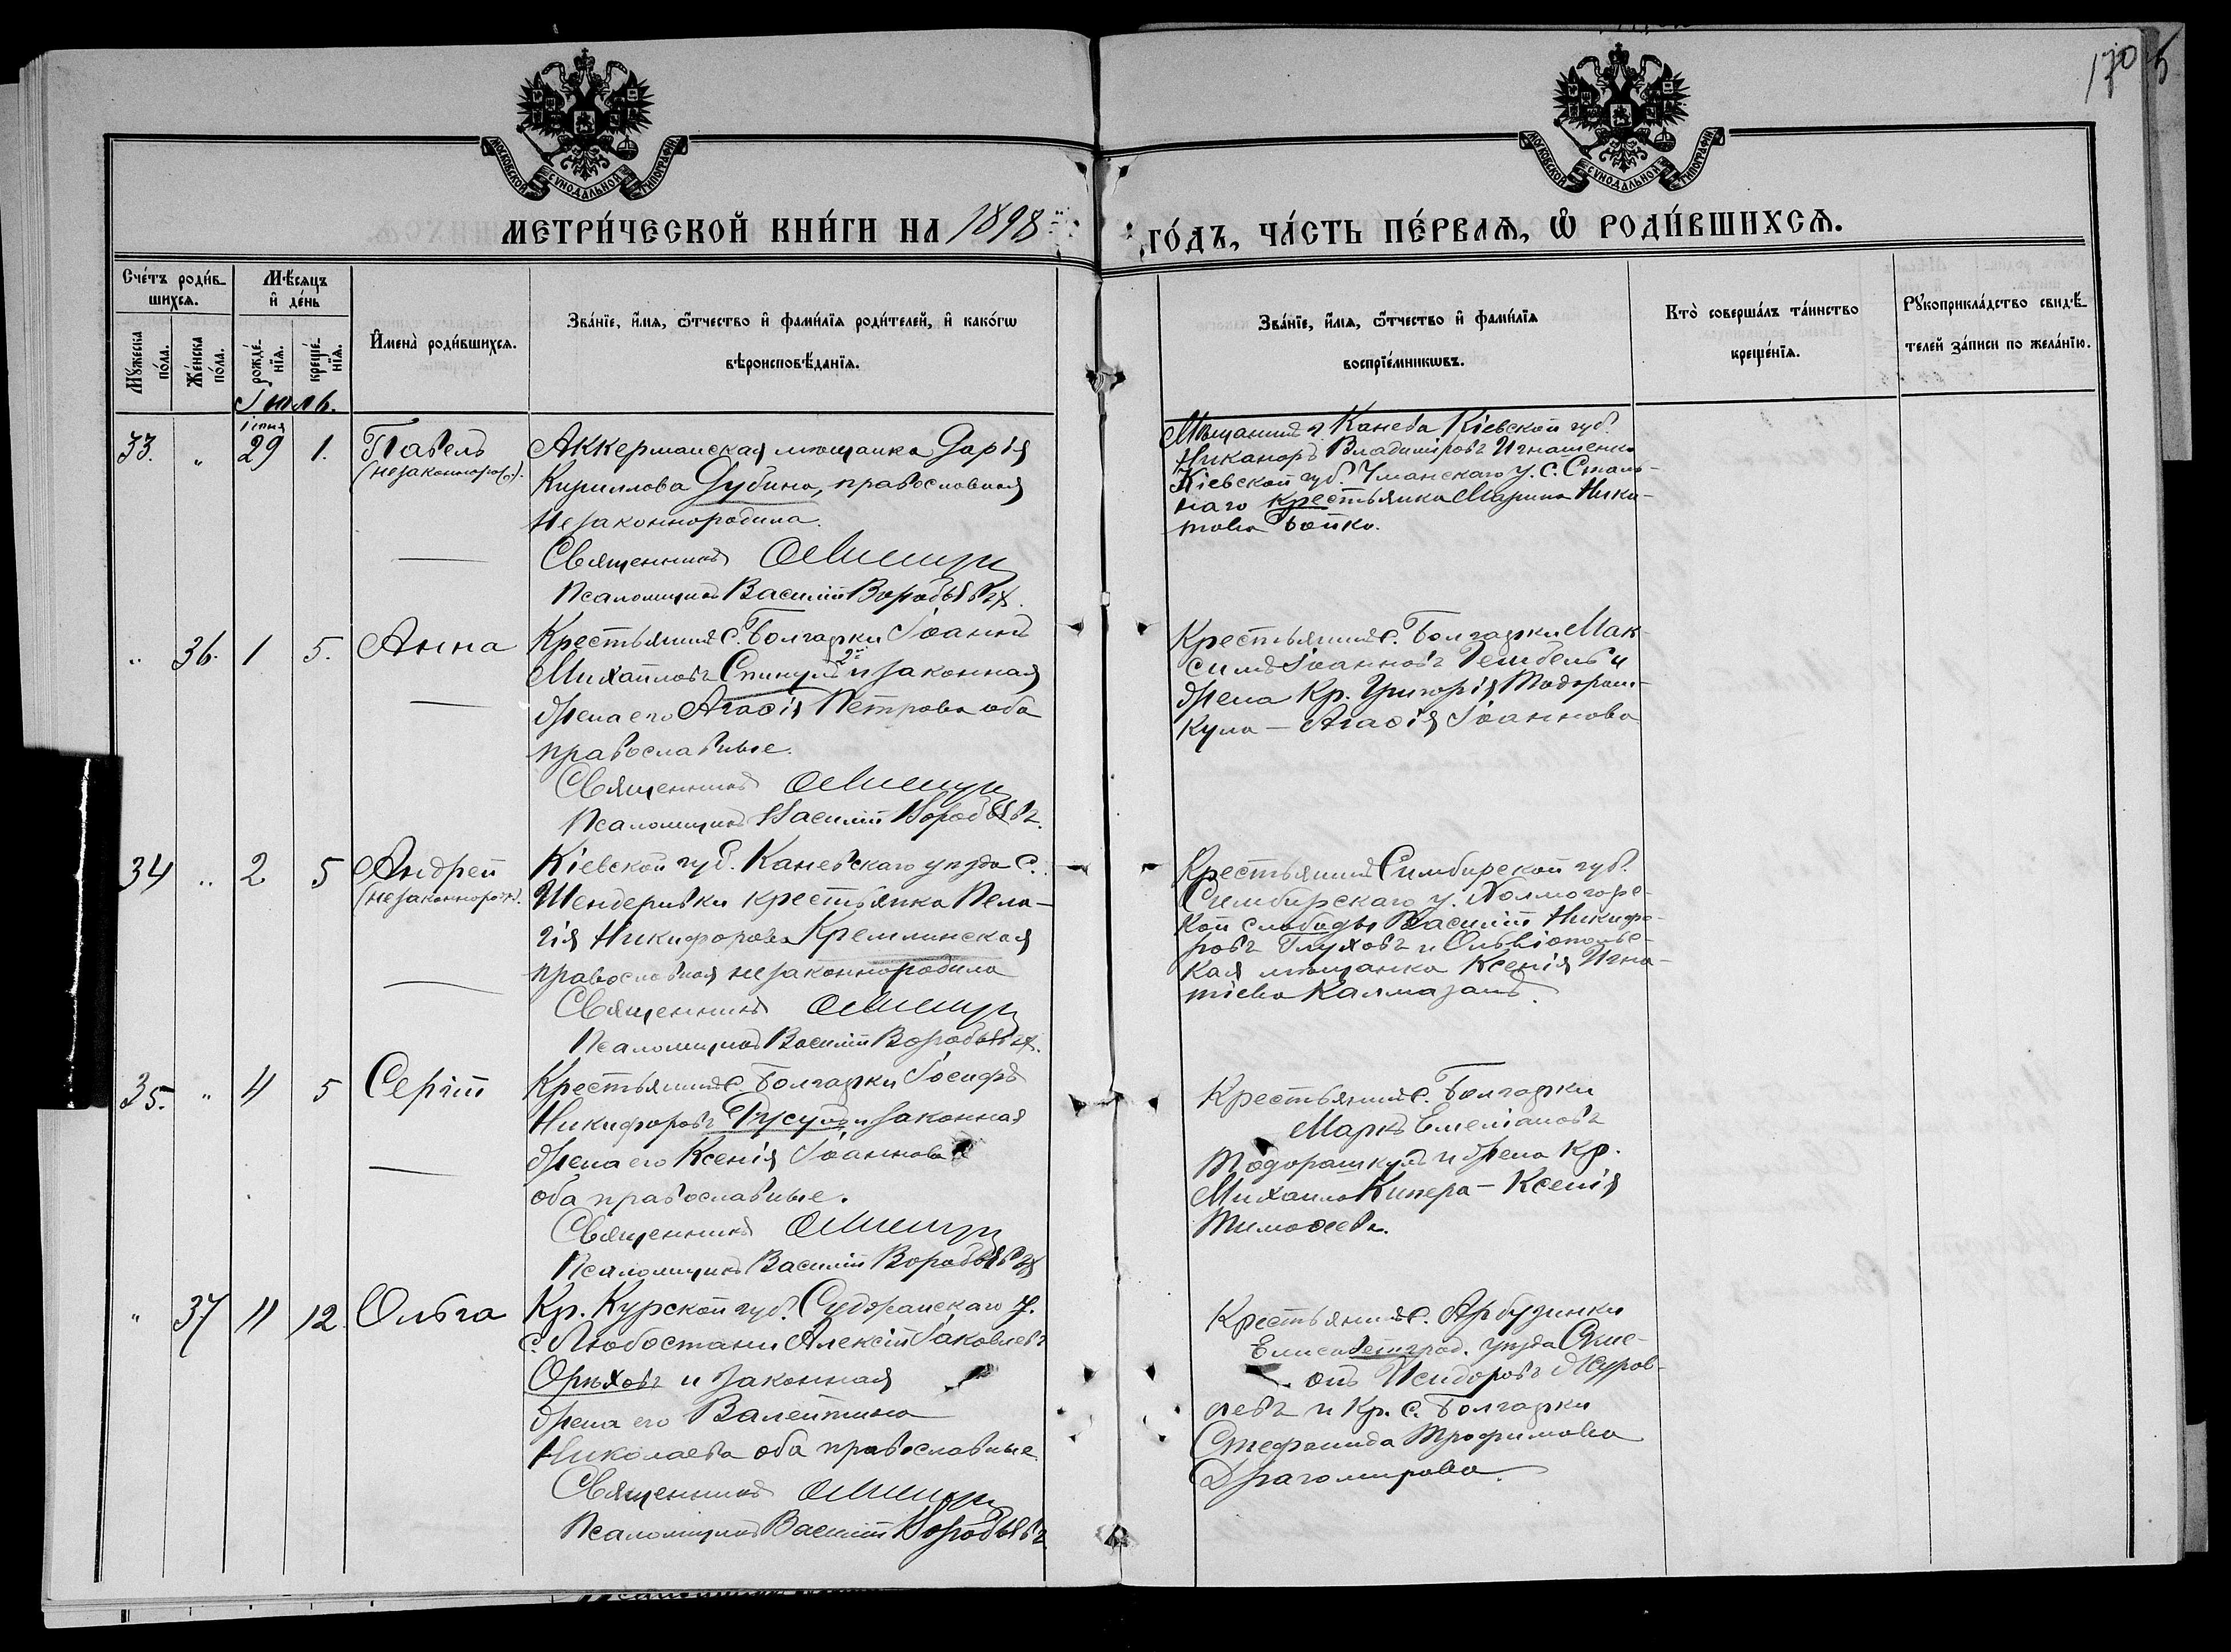 170
МОСКОВСКОЙ СѴНОДАЛЬНОЙ ТИПОГРАФІИ
МОСКОВСКОЙ СѴНОДАЛЬНОЙ ТИПОГРАФІИ
МЕТРИ́ЧЕСКОЙ КНИ́ГИ НА 1898
ГО́ДЪ, ЧА́СТЬ ПЕ́РВАѦ, Ѡ РОДИ́ВШИХСѦ.
Сче́тъ роди́в-
шихсѧ.
Мѣ́сѧцъ
и҆ де́нь
Мꙋ́жеска
по́ла.
Же́нска
по́ла.
рожде́-
нїѧ.
креще́-
нїѧ.
И҆мена̀ роди́вшихсѧ.
Зва́нїе, и҆́мѧ, ѻ҆́тчество и҆ фами́лїѧ роди́телей, и҆ како́гѡ
вѣроисповѣ́данїѧ.
Зва́нїе, и҆́мѧ, ѻ҆́тчество и҆ фами́лїѧ
воспрїе́мникѡвъ.
Кто̀ соверша́лъ та́инство
креще́нїѧ.
Рꙋкоприкла́дство свидѣ́-
телей за́писи по жела́нїю.
Іюль.
33. " Іюня 29 1. Павелъ
(незаконнорож).
Аккерманская мѣщанка Дарія
Кириллова Дубина, православная
незаконнородила.
Священникъ
Псаломщикъ Василій Воробьевъ.
Мѣщанинъ г. Канева Кіевской губ.
Никаноръ Владиміровъ Игнашенко
Кіевской губ. Уманскаго у. с. Сталь-
наго крестьянка Марина Ники-
това Бойко.
" 36. 1 5. Анна
Крестьянинъ с. Болгарки Іоаннъ
Михаиловъ Спинулъ и законная 2й
жена его Агаѳія Петрова оба
православные.
Священникъ
Псаломщикъ Василій Воробьевъ.
Крестьянинъ с. Болгарки Мак-
симъ Іоанновъ и
жена кр. Григорія Тодораш-
кула — Агаѳія Іоаннова
34 " 2 5 Андрей
(незаконнорож).
Кіевской губ. Каневскаго уѣзда с.
Шендеривки крестьянка Пела-
гія Никифорова Кремлинская
православная незаконнородила
Священникъ
Псаломщикъ Василій Воробьевъ.
Крестьянинъ Симбирской губ.
Симбирскаго у. Холмогорс-
кой слободы Василій Никифо-
ровъ Глуховъ и Ольвіопольс-
кая мѣщанка Ксенія Игна-
тіева Калмазанъ.
35. " 4 5 Сергій
Крестьянинъ с. Болгарки Іосифъ
Никифоровъ Русулъ и законная
жена его Ксенія Іоаннова
оба православные.
Священникъ
Псаломщикъ Василій Воробьевъ
Крестьянинъ с. Болгарки
Маркъ Емеліановъ
Тодорашкулъ и жена кр.
Михаила Кипера — Ксенія
Тимоѳеева.
" 37 11 12. Ольга
Кр. Курской губ. Суджанскаго у.
с. Любостани Алексій Іаковлевъ
Орѣховъ и законная
жена его Валентина
Николаева оба православные
Священникъ
Псаломщикъ Василій Воробьевъ.
Крестьянинъ с. Арбузинки
Елисаветград. уѣзда Симе-
онъ Исидоровъ Журов-
левъ и кр. с. Болгарки
Стефанида Трофимова
Драгомирова.